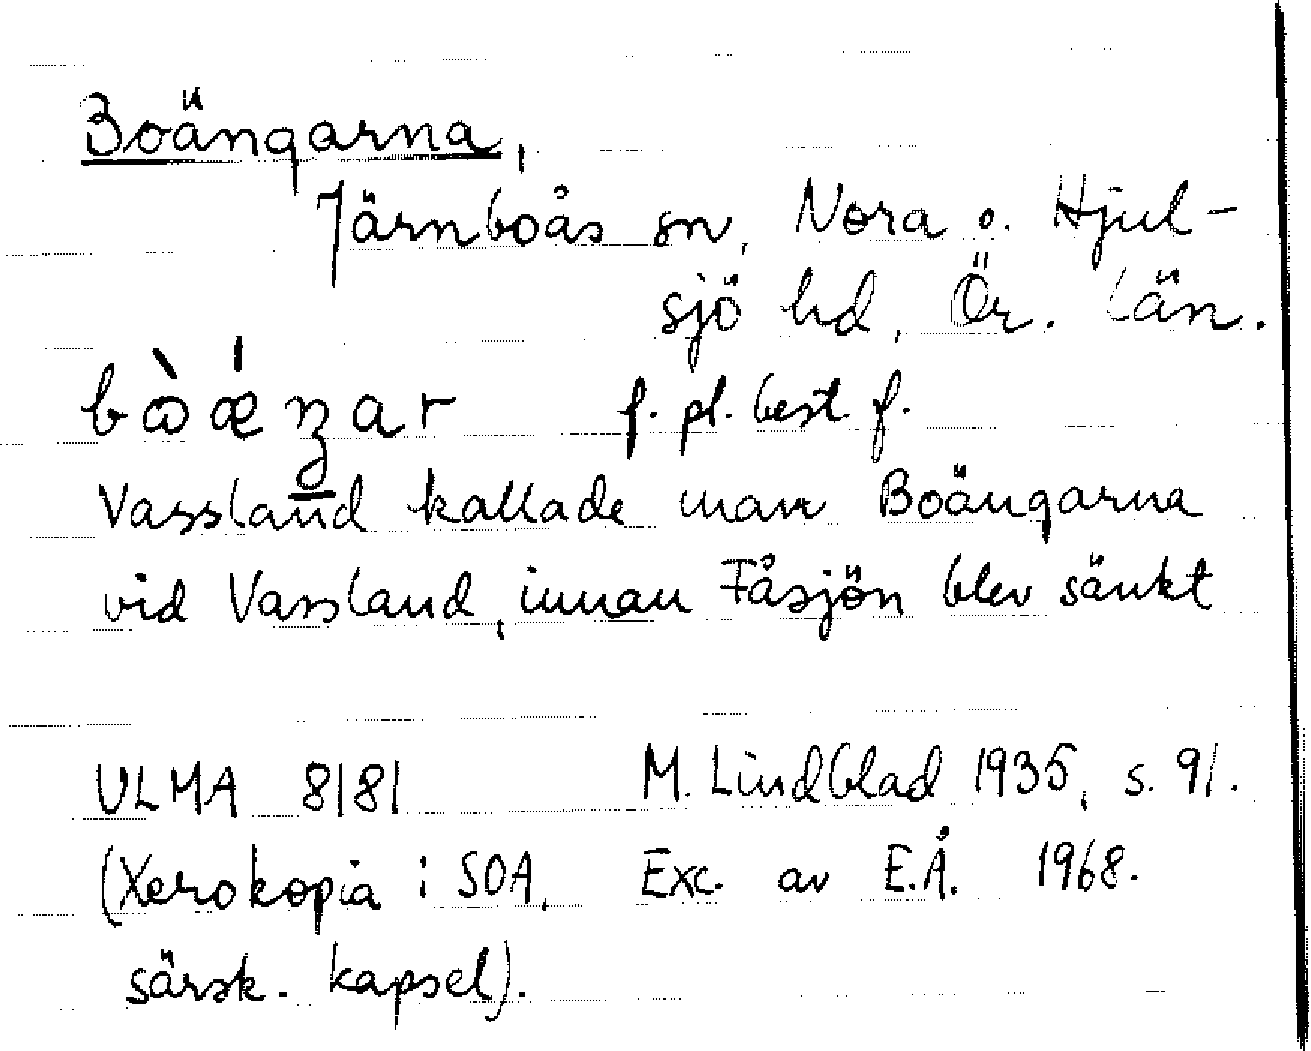 Boängarna,
Järnboås sn, Nora o. Hjul-
sjö hd, Ör. län.
f. pl. best. f.
Vassland kallade man Boängarna
vid Vassland, innan Fåsjön blev sänkt
ULMA 8181 M. Lindblad 1935, s. 91.
(Xerokopia i SOA, Exc. av E.Å. 1968.
särsk. kapsel).